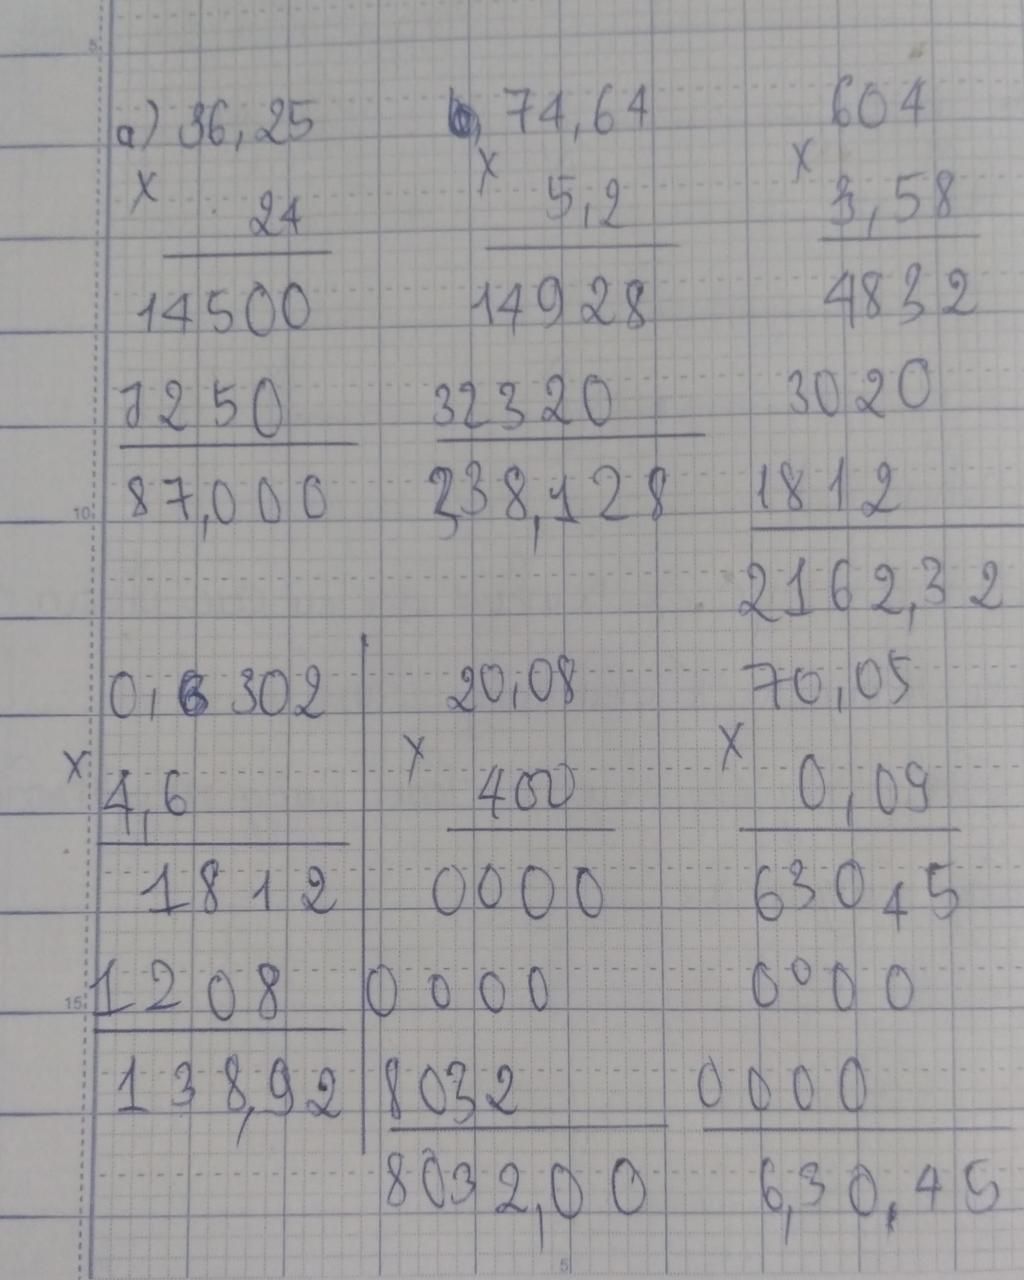 a) 36,25
x 24
14500
7250
87,000
b, 74,64
x 5,2
14928
32320
238,128
604
x 3,58
4832
3020
1812
2162,32
0,6302
x 4,6
1812
1208
138,92
20,08
x 400
0000
0000
8032
8032,00
70,05
x 0,09
63045
0000
0000
6,30,45